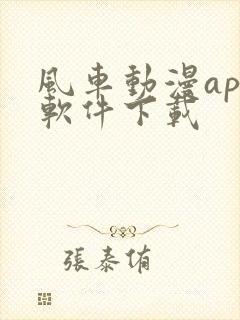 風車動漫ap
軟件下載
張泰侑